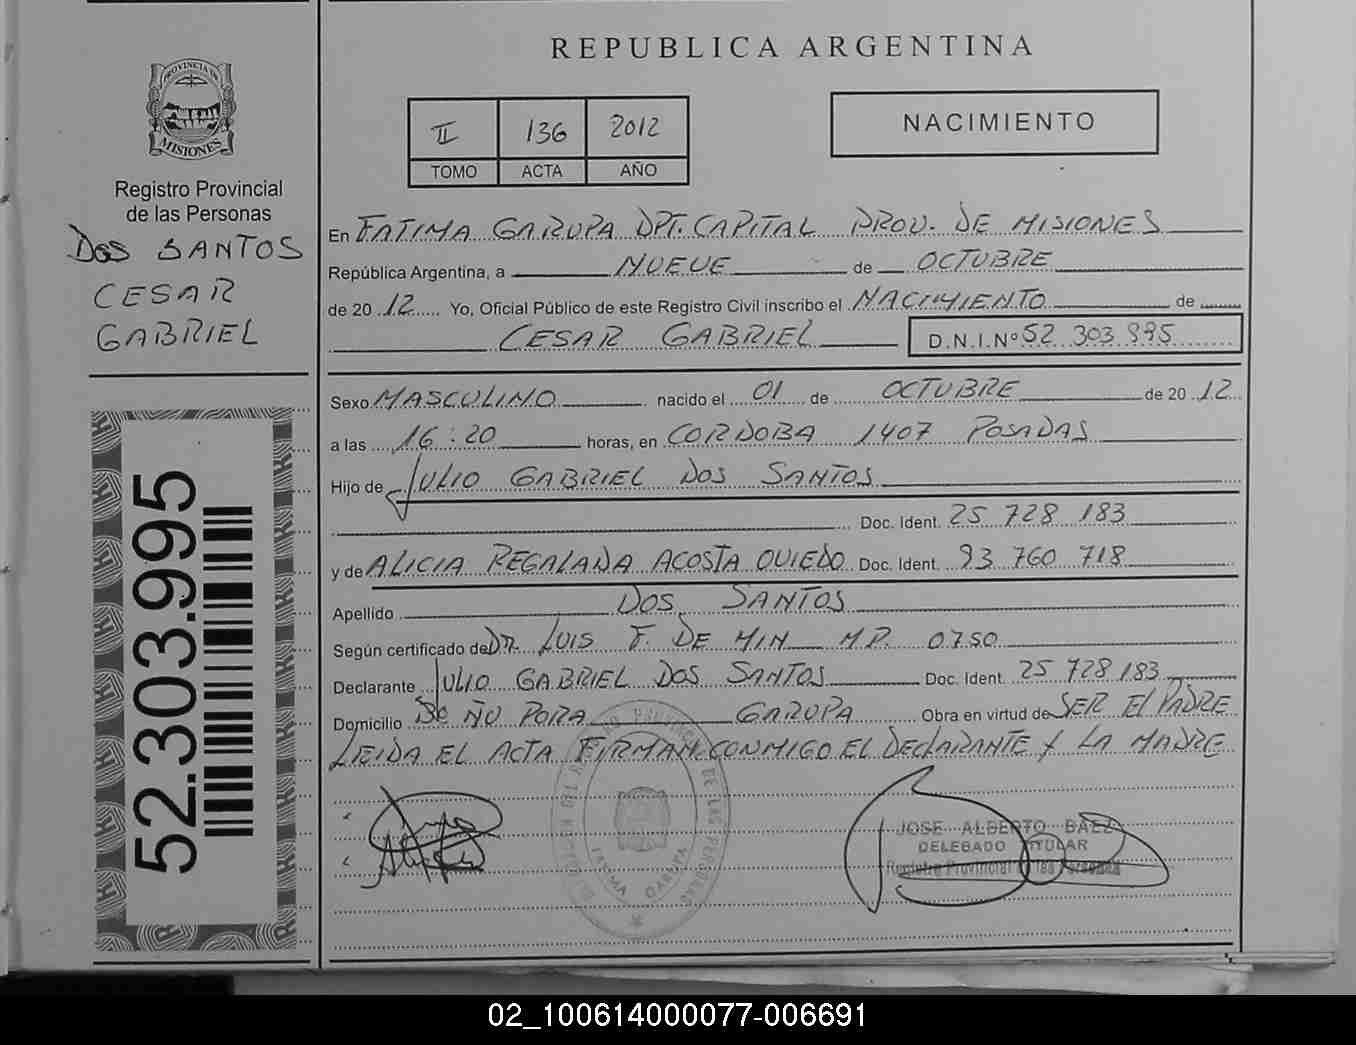 REPUBLICA ARGENTINA
PROVINCIA DE
MISIONES
Registro Provincial
de las Personas
DOS SANTOS
CESAR
GABRIEL
52.303.995
II 136 2012
TOMO ACTA AÑO
NACIMIENTO
En FATIMA GARUPA DPT. CAPITAL PROV. DE MISIONES
República Argentina, a NUEVE de OCTUBRE
de 20 12 Yo, Oficial Público de este Registro Civil inscribo el NACIMIENTO de
CESAR GABRIEL D.N.I.Nº 52 303 995
Sexo MASCULINO nacido el 01 de OCTUBRE de 20 12
a las 16:20 horas, en CORDOBA 1407 POSADAS
Hijo de JULIO GABRIEL DOS SANTOS
Doc. Ident. 25 728 183
y de ALICIA REGALADA ACOSTA OVIEDO Doc. Ident. 93 760 718
Apellido DOS SANTOS
Según certificado de DR. LUIS F. DE MIN M.P. 0750
Declarante JULIO GABRIEL DOS SANTOS Doc. Ident. 25 728 183
Domicilio Bº ÑU PORA GARUPA Obra en virtud de SER El PADRE
LEIDA EL ACTA FIRMAN CONMIGO EL DEClARANTE Y LA MADRE
JOSE ALBERTO BAEZ
DELEGADO TITULAR
Registro Provincial de las Personas
02_100614000077-006691